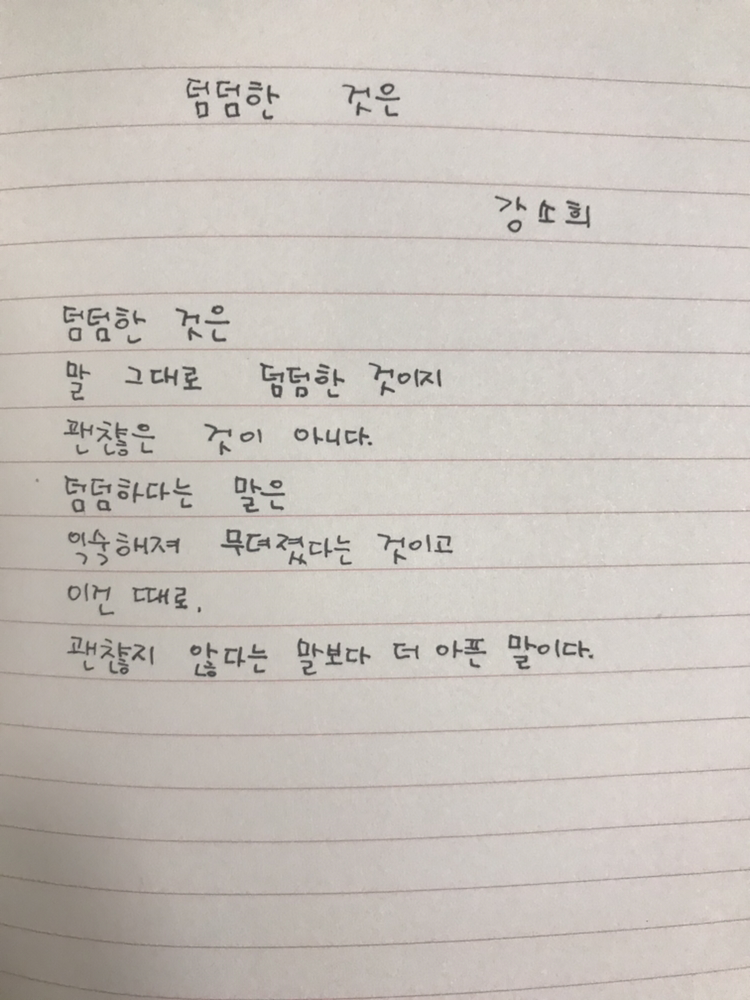 덤덤한 것은
강소희
덤덤한 것은
말 그대로 덤덤한 것이지
괜찮은 것이 아니다.
덤덤하다는 말은
익숙해져 무뎌졌다는 것이고
이건 때로,
괜찮지 않다는 말보다 더 아픈 말이다.